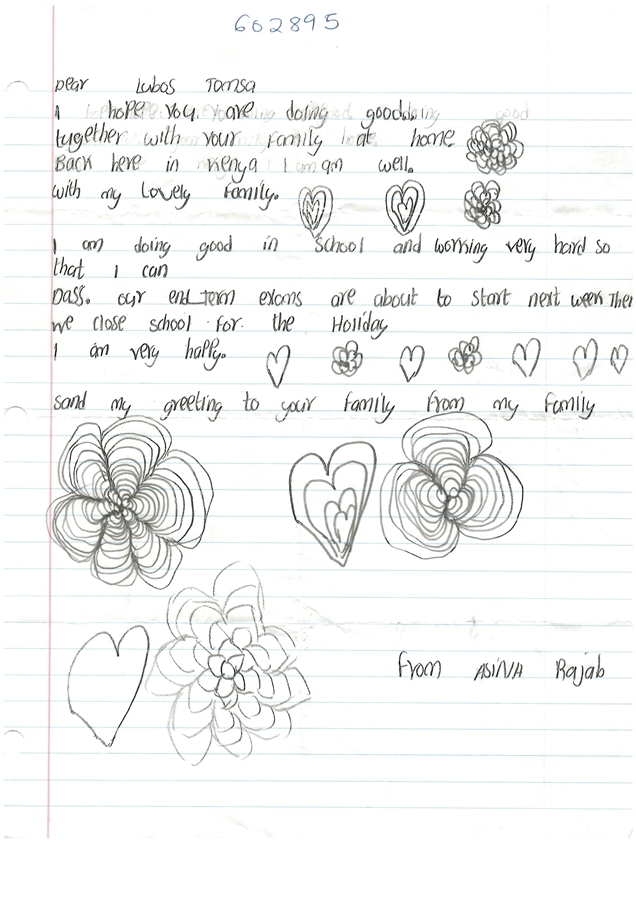 602895
Dear Lubos Tomsa
I hope you are doing good
together with your Family at home
Back here in Kenya I am well.
with my Lovely Family.
I am doing good in School and working very hard so
that I can
pass. our end term exams are about to start next week Then
we close school for the Holiday
I am very happy.
sand my greeting to your Family From my Family
From ASINA Rajab